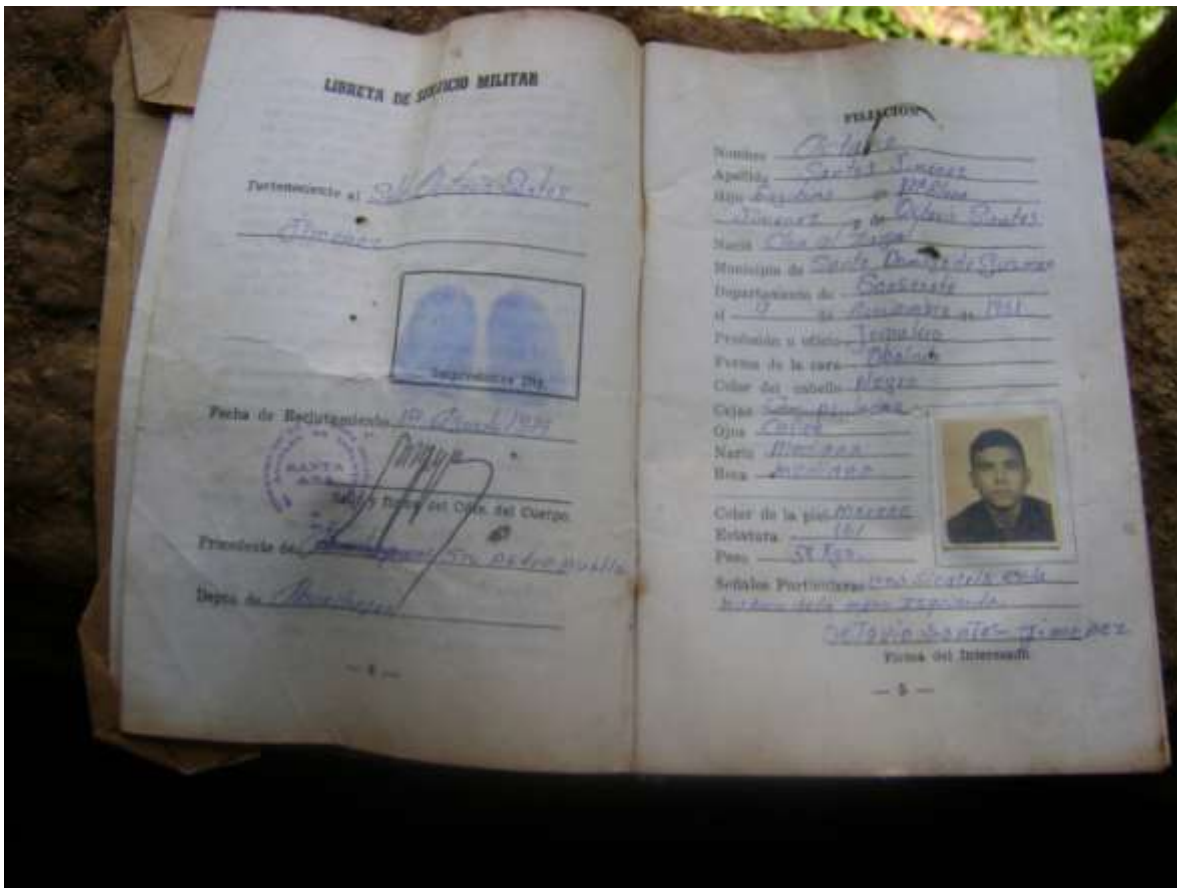 LIBRETA DE SERVICIO MILITAR
Perteneciente al Sol. Octavio Santos
Jimenez
Impresiones Dig.
Fecha de Reclutamiento 1º
SANTA
ANA
Sello y Firma del Cdte. del Cuerpo.
Procedente de San Pedro Puxtla
Depto. de Ahuachapan
— 4 —
FILIACION
Nombre Octavio
Apellido Santos Jimenez
Hijo de Mª Elena
Jimenez y de Octavio Santos
Nació
Municipio de Santo Domingo de Guzman
Departamento de Sonsonate
el de de 1951
Profesión u oficio Jornalero
Forma de la cara
Color del cabello Negro
Cejas Semi pobladas
Ojos Cafes
Nariz Mediana
Boca mediana
Color de la piel Morena
Estatura 161
Peso 58 Kgs.
Señales Particulares una sicatris en la
de la mano Izquierda
octavio santos jimenez
Firma del Interesado
— 5 —